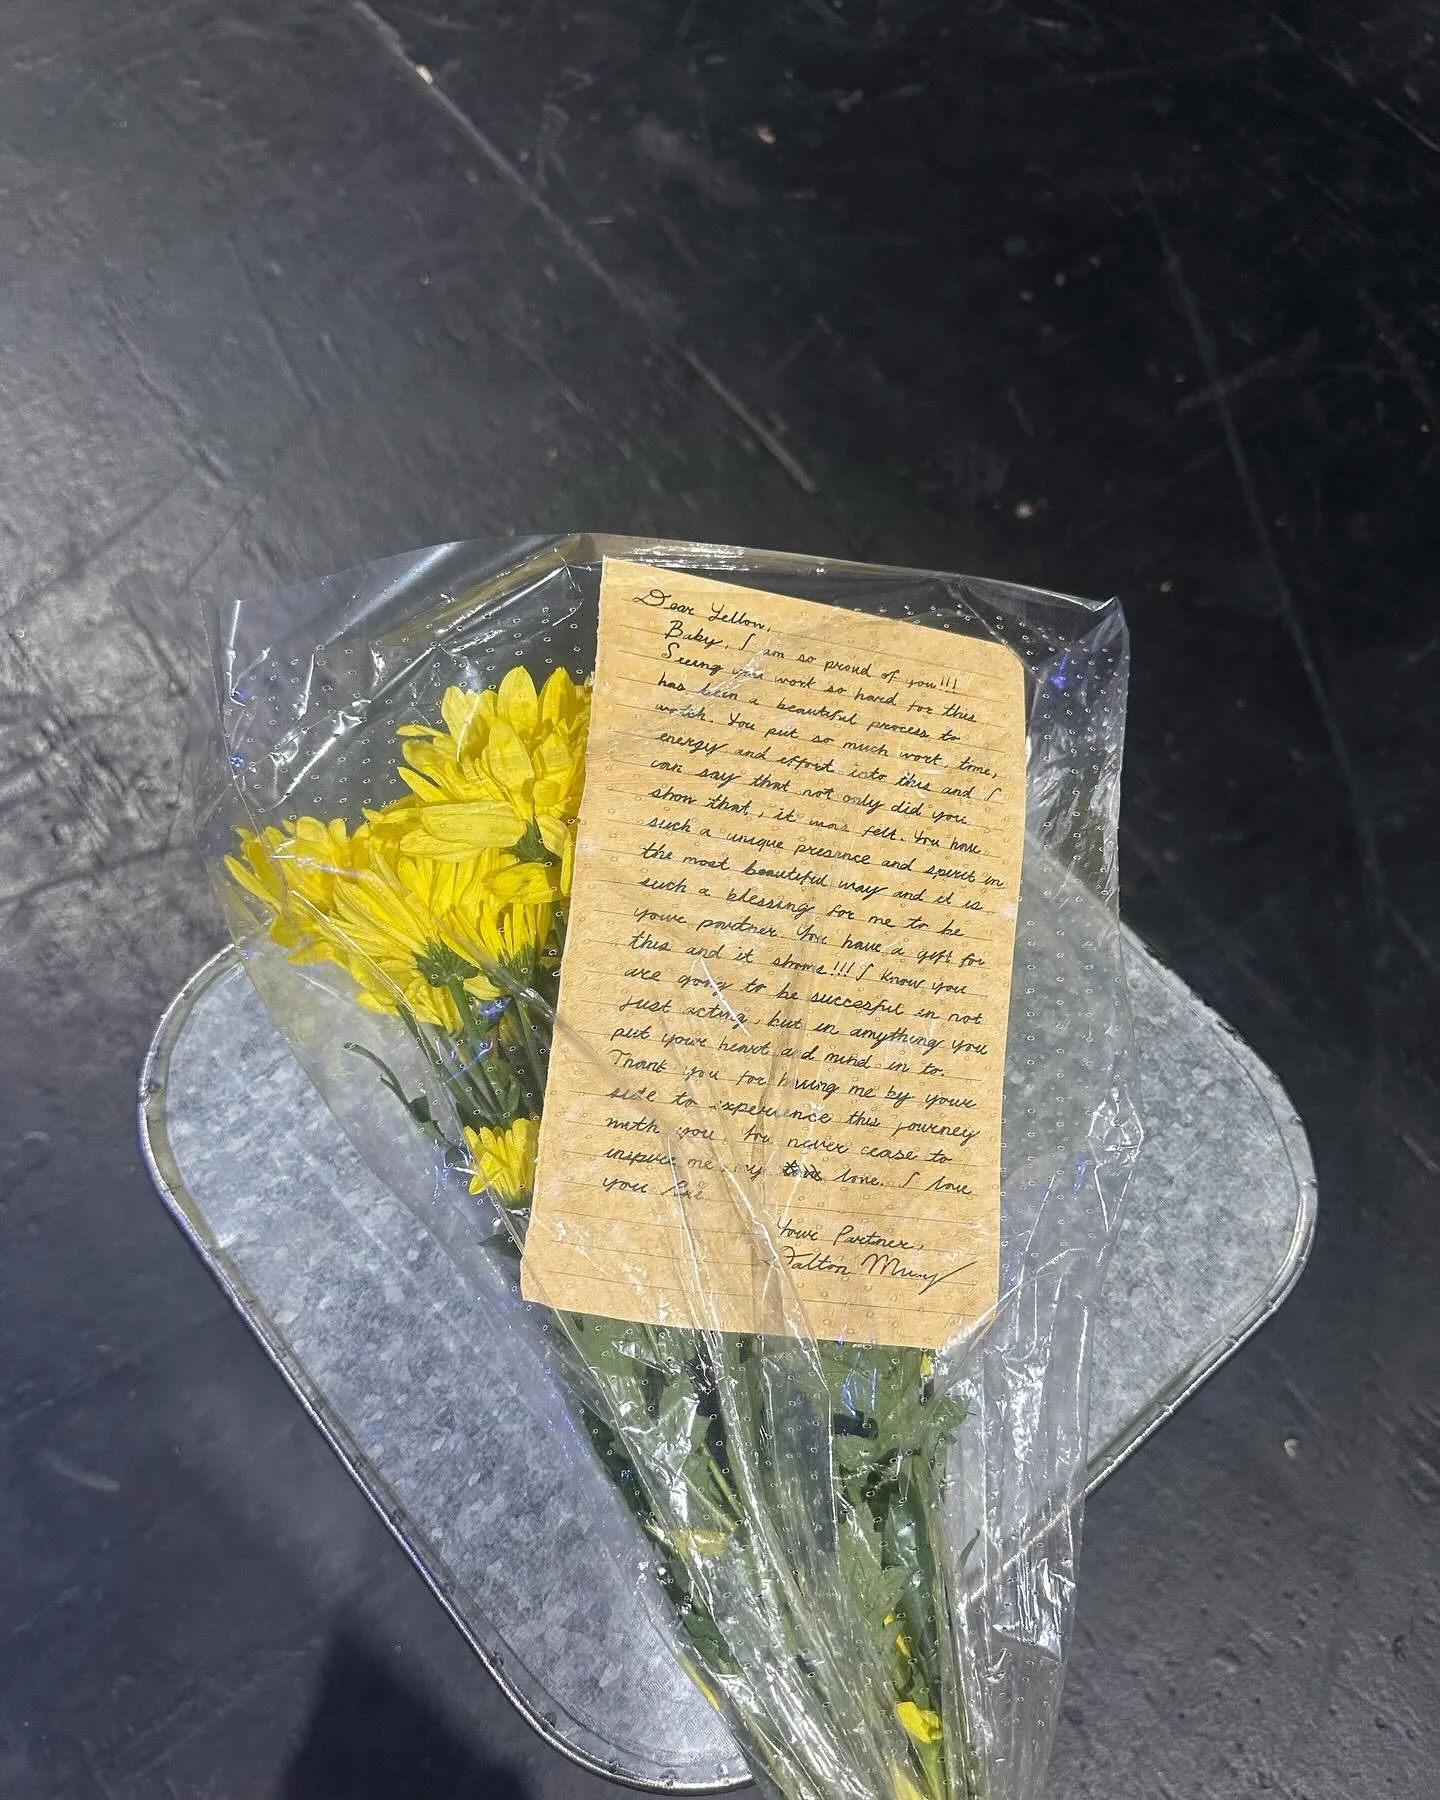 Dear Yellow,
Baby, I am so proud of you!!!
Seeing you work so hard for this
has been a beautiful process to
watch. You put so much work, time,
energy and effort into this and I
can say that not only did you
show that, it was felt. You have
such a unique presence and spirit in
the most beautiful way and it is
such a blessing for me to be
your partner. You have a gift for
this and it shows!!! I know you
are going to be succesful in not
just acting, but in anything you
put your heart and mind in to.
Thank you for having me by your
side to experience this journey
with you. You never cease to
inspire me, my love. I love
you
Your Partner,
Dalton